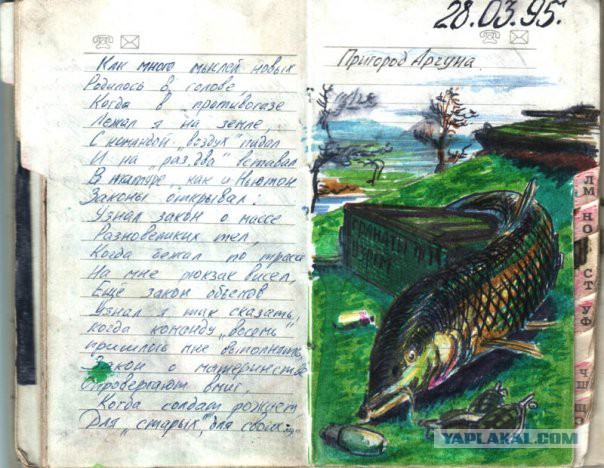 Как много мыслей новых
Родилось в голове
Когда в противогазе
Лежал я на земле,
С командой „воздух" падал
И на „раз, два" вставал
В как и Ньютон
Законы открывал:
Узнал закон о массе
Разновеликих тел,
Когда бежал по трассе
На мне рюкзак висел,
Ещё закон объемов
Узнал я так сказать,
Когда команду „восемь"
пришлось мне выполнять,
Закон о материнстве
Опровергают вмиг,
Когда солдат рожает
Для „старых", для своих
28.03.95г.
Пригород Аргуна.
гранаты
взрыв
Л М
Н О
С Т
У Ф
Ч Ш
Щ
YAPLAKAL.COM